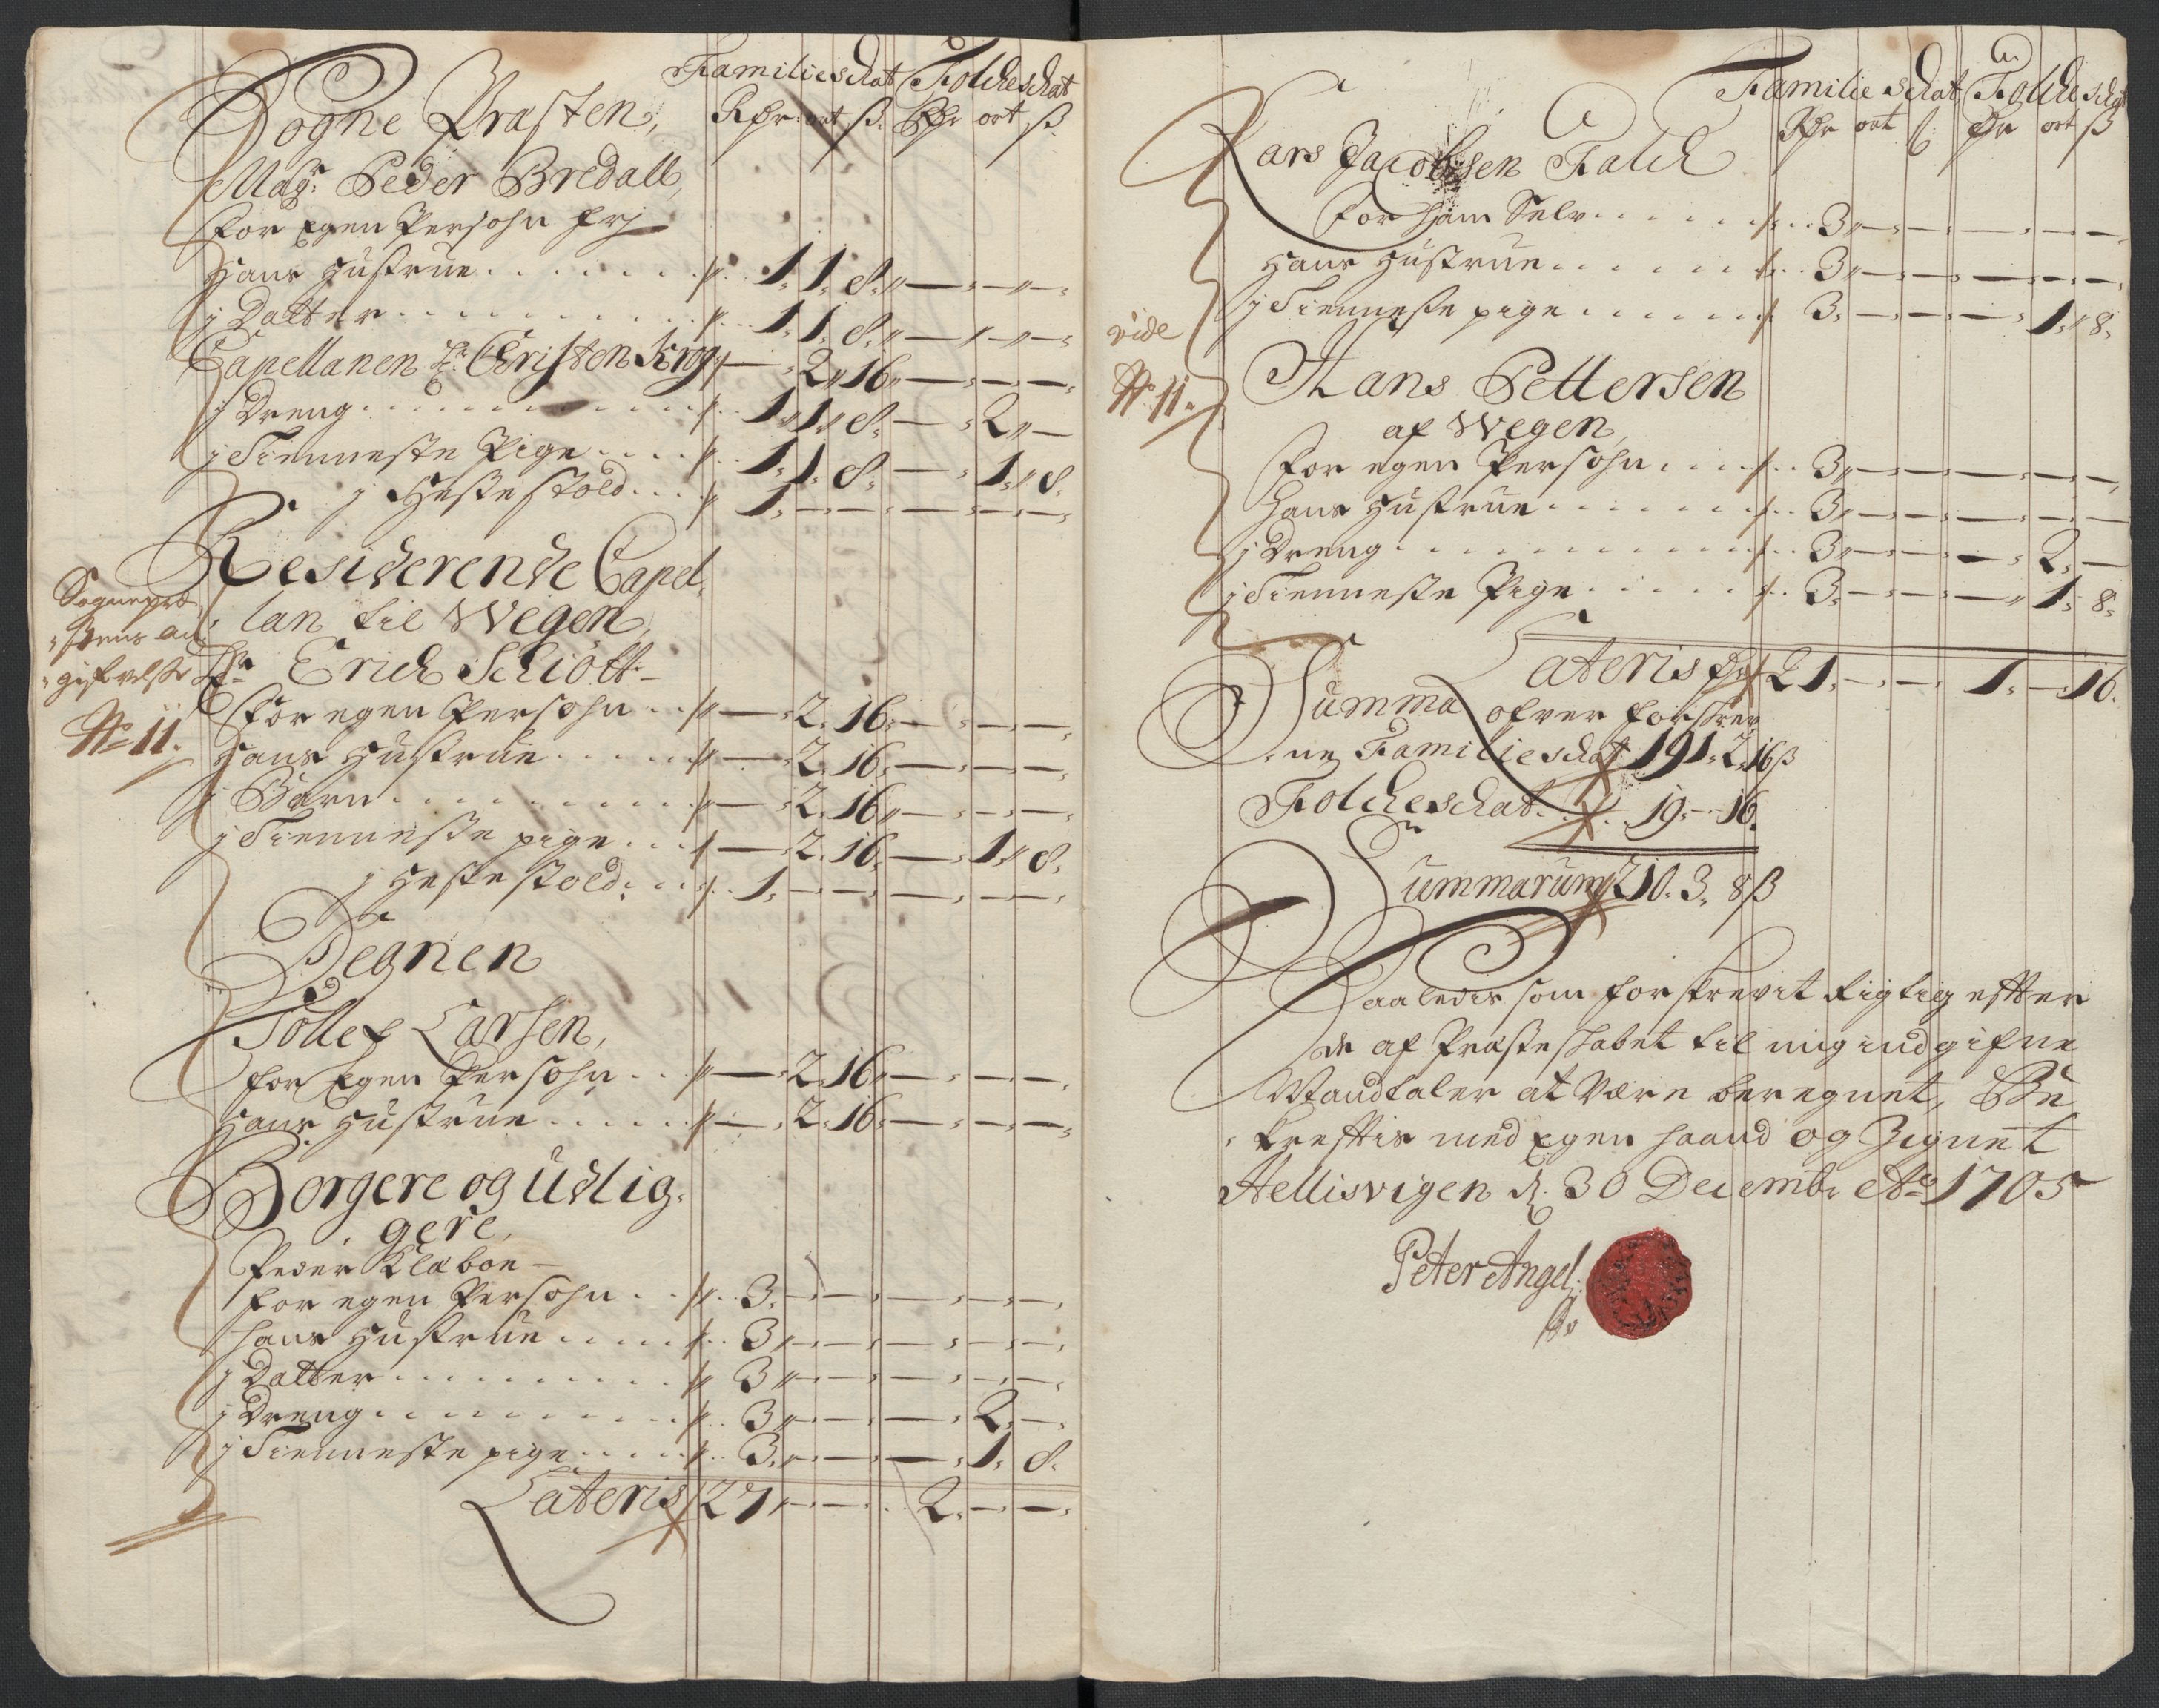 Familie schat Folcheschat
Rdr: ort ß. Rdr ort ß
Sogne Præsten,
Magr. Peder Bredall,
for Egen Persohn frj
Hans Hustrue . . . . . . . 1, 1, 8„ — „ — „ —
j Datter . . . . . . . . . 1, 1, 8„ — „ — „ —
Capellanen Hr. Christen Krog — 2„ 16„ — — —
j Dreng . . . . . . . . . 1„ 1„ 8, — 2„ —
j Tienneste Pige . . . . 1, 1, 8, — 1„ 8.
j Hestestold . . . . 1, — — — — —
Residerende Capel-
lan til Wegen,
Hr Erich Schiött
for egen Persohn . . — 2, 16, — — —
Hans Hustrue . . . . — 2, 16, — — —
j Barn . . . . . . . . — 2, 16„ — — —
j Tienneste pige . . . — 2, 16, — 1„ 8.
j Hestestold, . . . 1, — — — — —
Sognepræ-
stens an-
gifvelse
No 11.
Degnen
Tollef Larsen,
for Egen Persohn . . — 2, 16„ — — —
Hans Hustrue . . . . — 2, 16, — — —
Borgere og Udlig-
gere,
Peder Klæboe —
for egen Persohn . . 3, — — — — —
hans Hustrue . . . . 3„ — — — — —
j Datter . . . . . . . . 3„ — — — — —
j Dreng . . . . . . . . 3„ — — — 2, —
j Tienneste pige . . . . 3, — — — 1, 8.
Lateris 27„ — — 2, — —
Familie schat Folche schat
Rdr ort ß Rdr ort ß
Lars Jacobsen Falch
for ham Selv . . . . . 3„ — — — — —
Hans Hustrue . . . . . 3„ — — — — —
j Tienneste pige . . . . . 3, — — — 1„ 8,
vide
No 11.
Hans Pettersen
af Wegen,
for egen Persohn . . . . 3„ — — — — —
hans Hustrue . . . . . . 3„ — — — — —
j Dreng . . . . . . . . . 3„ — — — 2, —
j Tienneste Pige . . . . . 3, — — — 1, 8,
Lateris 21, — — 1, — 16.
Summa ofver forskrev-
ne Familie schat 191, 2, 16ß
Folcheschat . . . 19, — 16.
Summarum 210. 3, 8ß
Saaledis som forskrevit Rigtig efter
de af Præsteskabet til mig indgifne
Mandtaler at være beregnet, Be-
kreftis med Egen haand og Zignet
Hellisvigen d. 30 Decembr Ao 1705
Peter Angel: